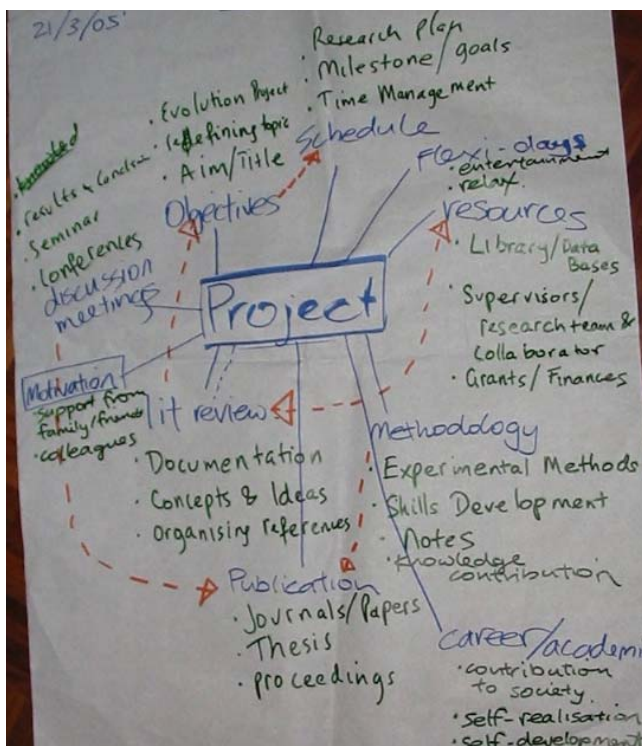 21/3/05
Research Plan
Milestone/goals
Time Management
Schedule
Evolution Project
redefining topic
Aim/Title
Objectives
Flexi-days
entertainment
relax.
resources
Library/Data
Bases
Supervisors/
research team &
collaborator
Grants/Finances
results & Conclusion
Seminar
Conferences
discussion
meetings
Project
Motivation
support from
family/friends
colleagues
lit review
Documentation
Concepts & Ideas
Organising references
Methodology
Experimental Methods
Skills Development
Notes
knowledge
contribution
Publication
Journals/Papers
Thesis
proceedings
career/academi
contribution
to society.
self-realisation
self-development